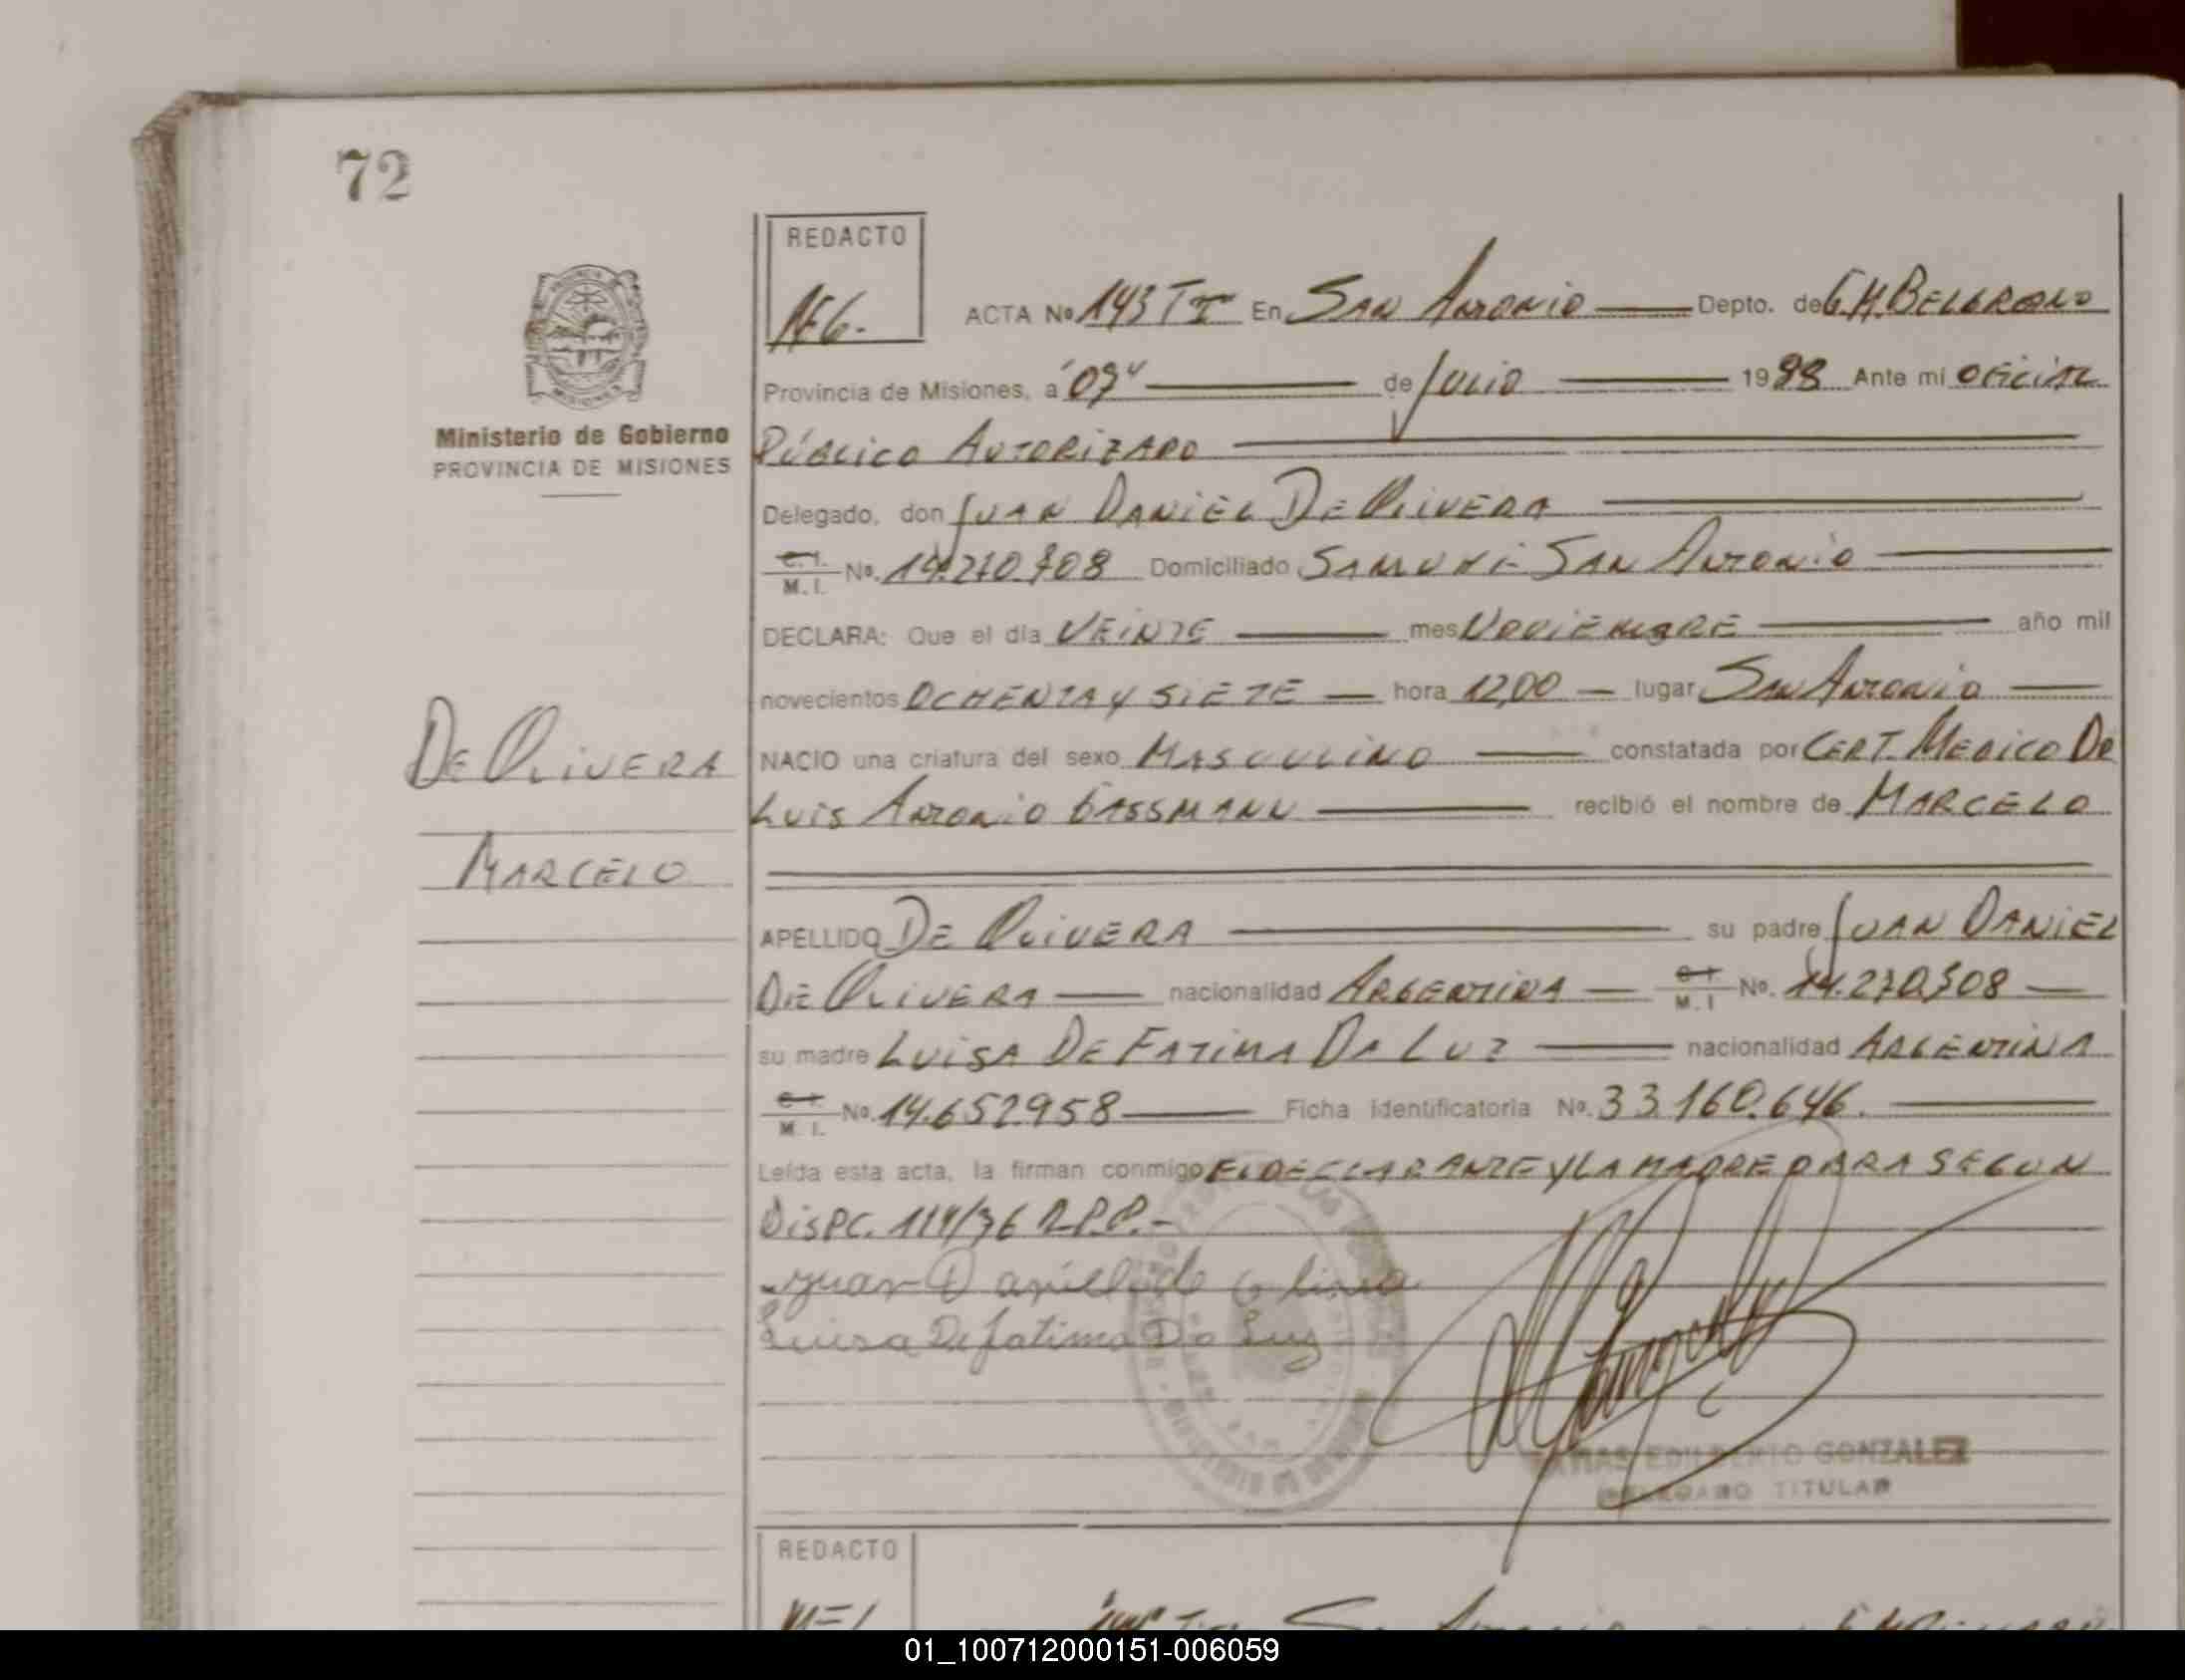 72
REDACTO
MEG.
ACTA Nº 143 TºI En SAN ANTONIO Depto. de G.M. BELGRANO
Provincia de Misiones, a "07" de JULIO 1988 Ante mi OFICIAL
Ministerio de Gobierno
PROVINCIA DE MISIONES
PÚBLICO AUTORIZADO
Delegado, don JUAN DANIEL DE OLIVERA
C. I.
M. I. No. 14.270.708 Domiciliado SAMUHI- SAN ANTONIO
DECLARA: Que el día VEINTE mes NOVIEMBRE año mil
novecientos OCHENTA Y SIETE hora 12,00 lugar SAN ANTONIO
DE OLIVERA
NACIO una criatura del sexo MASCULINO constatada por CERT. MEDICO DE
LUIS ANTONIO GASSMANN recibió el nombre de MARCELO
MARCELO
APELLIDO DE OLIVERA su padre JUAN DANIEL
DE OLIVERA nacionalidad ARGENTINA C. I.
M. I No. 14.270.708
su madre LUISA DE FATIMA DA LUZ nacionalidad ARGENTINA
C. I.
M. I. No. 14.652.958 Ficha identificatoria No. 33.160.646.
Leída esta acta, la firman conmigo EL DECLARANTE Y LA MADRE PARA SEGUN
DISPC. 114/76 R.P.P.-
Juan Daniel de Olivera
Luisa De fatima Da Luz
EDILBERTO GONZALEZ
DELEGADO TITULAR
REDACTO
01_100712000151-006059